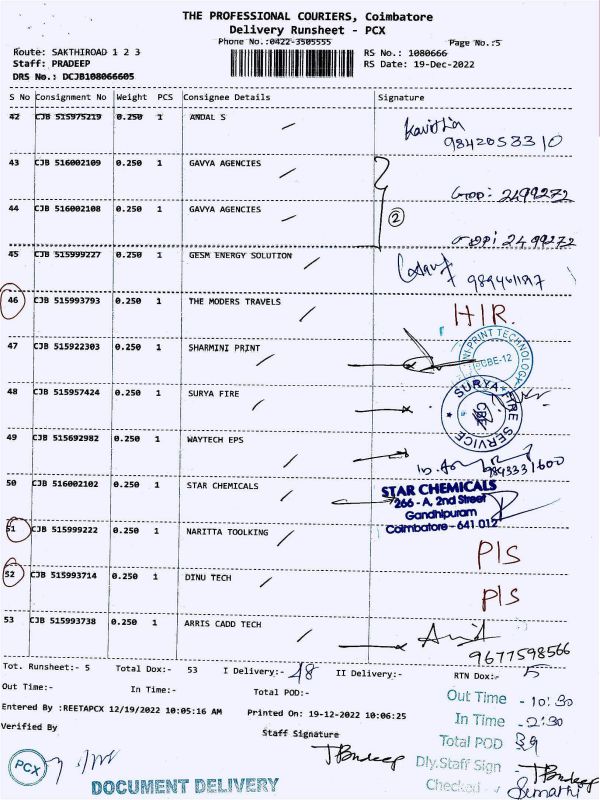 THE PROFESSIONAL COURIERS, Coimbatore
Delivery Runsheet - PCX
Phone No.:0422-3505555
Page No.:5
Route: SAKTHIROAD 1 2 3
RS No.: 1080666
Staff: PRADEEP
RS Date: 19-Dec-2022
DRS No.: DCJB108066605
S No Consignment No Weight PCS Consignee Details Signature
42 CJB 515975219 0.250 1 ANDAL S
9842053310
43 CJB 516002109 0.250 1 GAVYA AGENCIES
2499272
44 CJB 516002108 0.250 1 GAVYA AGENCIES
2
2499272
45 CJB 515999227 0.250 1 GESM ENERGY SOLUTION
46 CJB 515993793 0.250 1 THE MODERS TRAVELS
HIR.
47 CJB 515922303 0.250 1 SHARMINI PRINT
PRINT TECHNOLOGY
CBE-12
48 CJB 515957424 0.250 1 SURYA FIRE
SURYA FIRE SERVICE
CBE
49 CJB 515692982 0.250 1 WAYTECH EPS
9843331600
50 CJB 516002102 0.250 1 STAR CHEMICALS
STAR CHEMICALS
266 - A, 2nd Street
Gandhipuram
Coimbatore - 641 012
51 CJB 515999222 0.250 1 NARITTA TOOLKING
P/S
52 CJB 515993714 0.250 1 DINU TECH
P/S
53 CJB 515993738 0.250 1 ARRIS CADD TECH
9677598566
Tot. Runsheet:- 5 Total Dox:- 53 I Delivery:- 48 II Delivery:- RTN Dox:- 5
Out Time:- In Time:- Total POD:-
Out Time - 10:30
Entered By :REETAPCX 12/19/2022 10:05:16 AM Printed On: 19-12-2022 10:06:25
In Time - 2:30
Verified By
Staff Signature
Total POD 39
Dly.Staff Sign -
PCX
DOCUMENT DELIVERY
Checked -